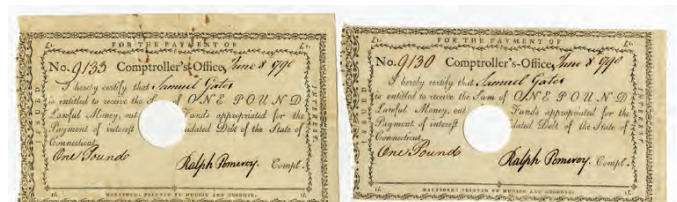 £1. FOR THE PAYMENT OF £1.
No. 9133 Comptroller's-Office, June 8 1790
I hereby certify that Samuel Gates
is entitled to receive the S of ONE POUND
Lawful Money, out Funds appropriated for the
Payment of interest idated Debt of the State of
Connecticut.
One Pound
Ralph Pomeroy. Compt.
ISSUED
INTEREST.
1£. HARTFORD: PRINTED BY HUDSON AND GOODWIN. 1£.
£1. FOR THE PAYMENT OF £1.
No. 9130 Comptroller's-Office, June 8 1790
I hereby certify that Samuel Gates
is entitled to receive the Sum of ONE POUND
Lawful Money, out Funds appropriated for the
Payment of interest idated Debt of the State of
Connecticut.
One Pound
Ralph Pomeroy. Compt.
ISSUED
INTEREST.
1£. HARTFORD: PRINTED BY HUDSON AND GOODWIN. 1£.